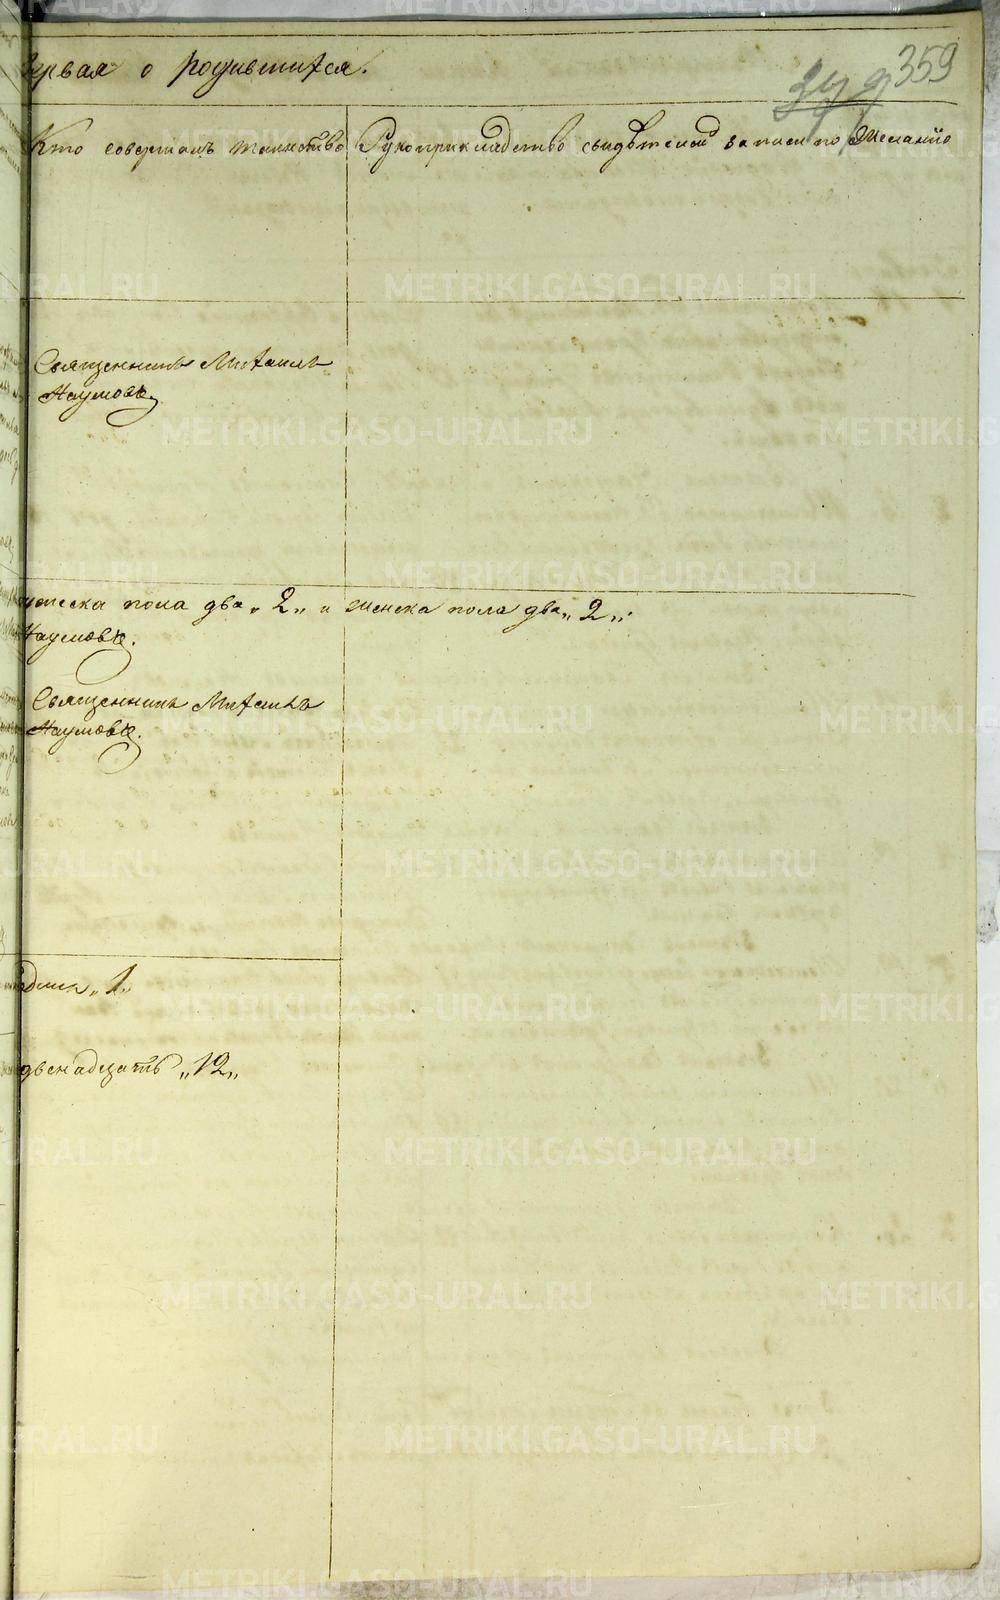 первая о родившихся.
359
Кто совершалъ таинство
Рукоприкладство свидѣтелей записи по желанію
Священникъ Михаилъ
Наумовъ.
мужеска пола два „2„ и женска пола два „2„.
Наумовъ.
Священникъ Михаилъ
Наумовъ.
одинъ „1„
двенадцать „12„
METRIKI.GASO-URAL.RU